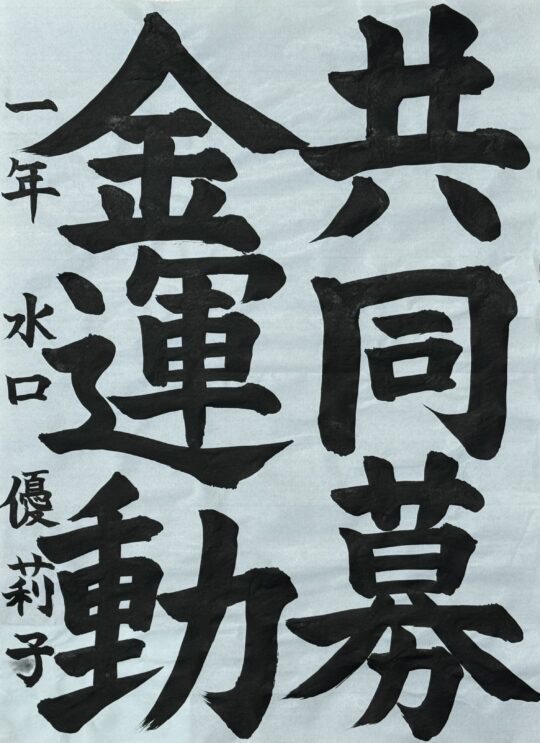 共同募
金運動
一年 水口 優莉子